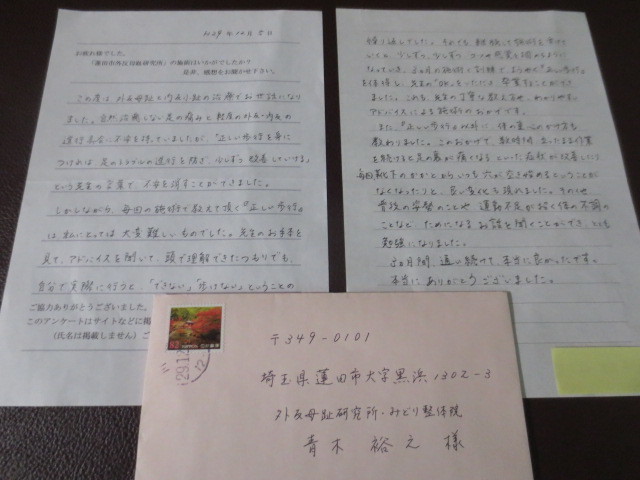 H29年12月5日
お疲れ様でした。
「蓮田市外反母趾研究所」の施術はいかがでしたか?
是非、感想をお聞かせ下さい。
この度は、外反母趾と内反小趾の治療でお世話になり
ました。自然治癒しない足の痛みと軽度の外反・内反の
進行具合に不安を持っていましたが、"正しい歩行を身に
つければ、足のトラブルの進行を防ぎ、少しずつ改善していける"
という先生の言葉で、不安を消すことができました。
しかしながら、毎回の施術で教えて頂く"正しい歩行"
は、私にとっては大変難しいものでした。先生のお手本を
見て、アドバイスを聞いて、頭で理解できたつもりでも、
自分で実際に行うと、「できない」「歩けない」ということの
ご協力ありがとうございました。
このアンケートはサイトなどに掲
(氏名は掲載しません)ご
繰り返しでした。それでも、継続して施術を受けて
いくと、少しずつ、少しずつ、コツや感覚を掴めるように
なっていき、
体得し、先生の"OK"をいただき、卒業することができ
ました。これも、先生の丁寧な教え方や、わかりやすい
アドバイスによる施術のおかげです。
また、"正しい歩行"以外に、体の重心のかけ方も
教わりました。このおかげで、数時間立ったまま作業
を続けると足の裏が痛くなるといった症状が改善したり
毎回靴下のかかとからいつも穴が空き始めるということが
なくなったりと、良い変化も現れました。その他
普段の姿勢のことや、運動不足が招く体の不調の
ことなど、ためになるお話を聞くことができ、とても
勉強になりました。
間、通い続けて、本当に良かったです。
本当にありがとうございました。
82
〒349-0101
埼玉県蓮田市大字黒浜1302-3
外反母趾研究所・みどり整体院
青木 裕之 様